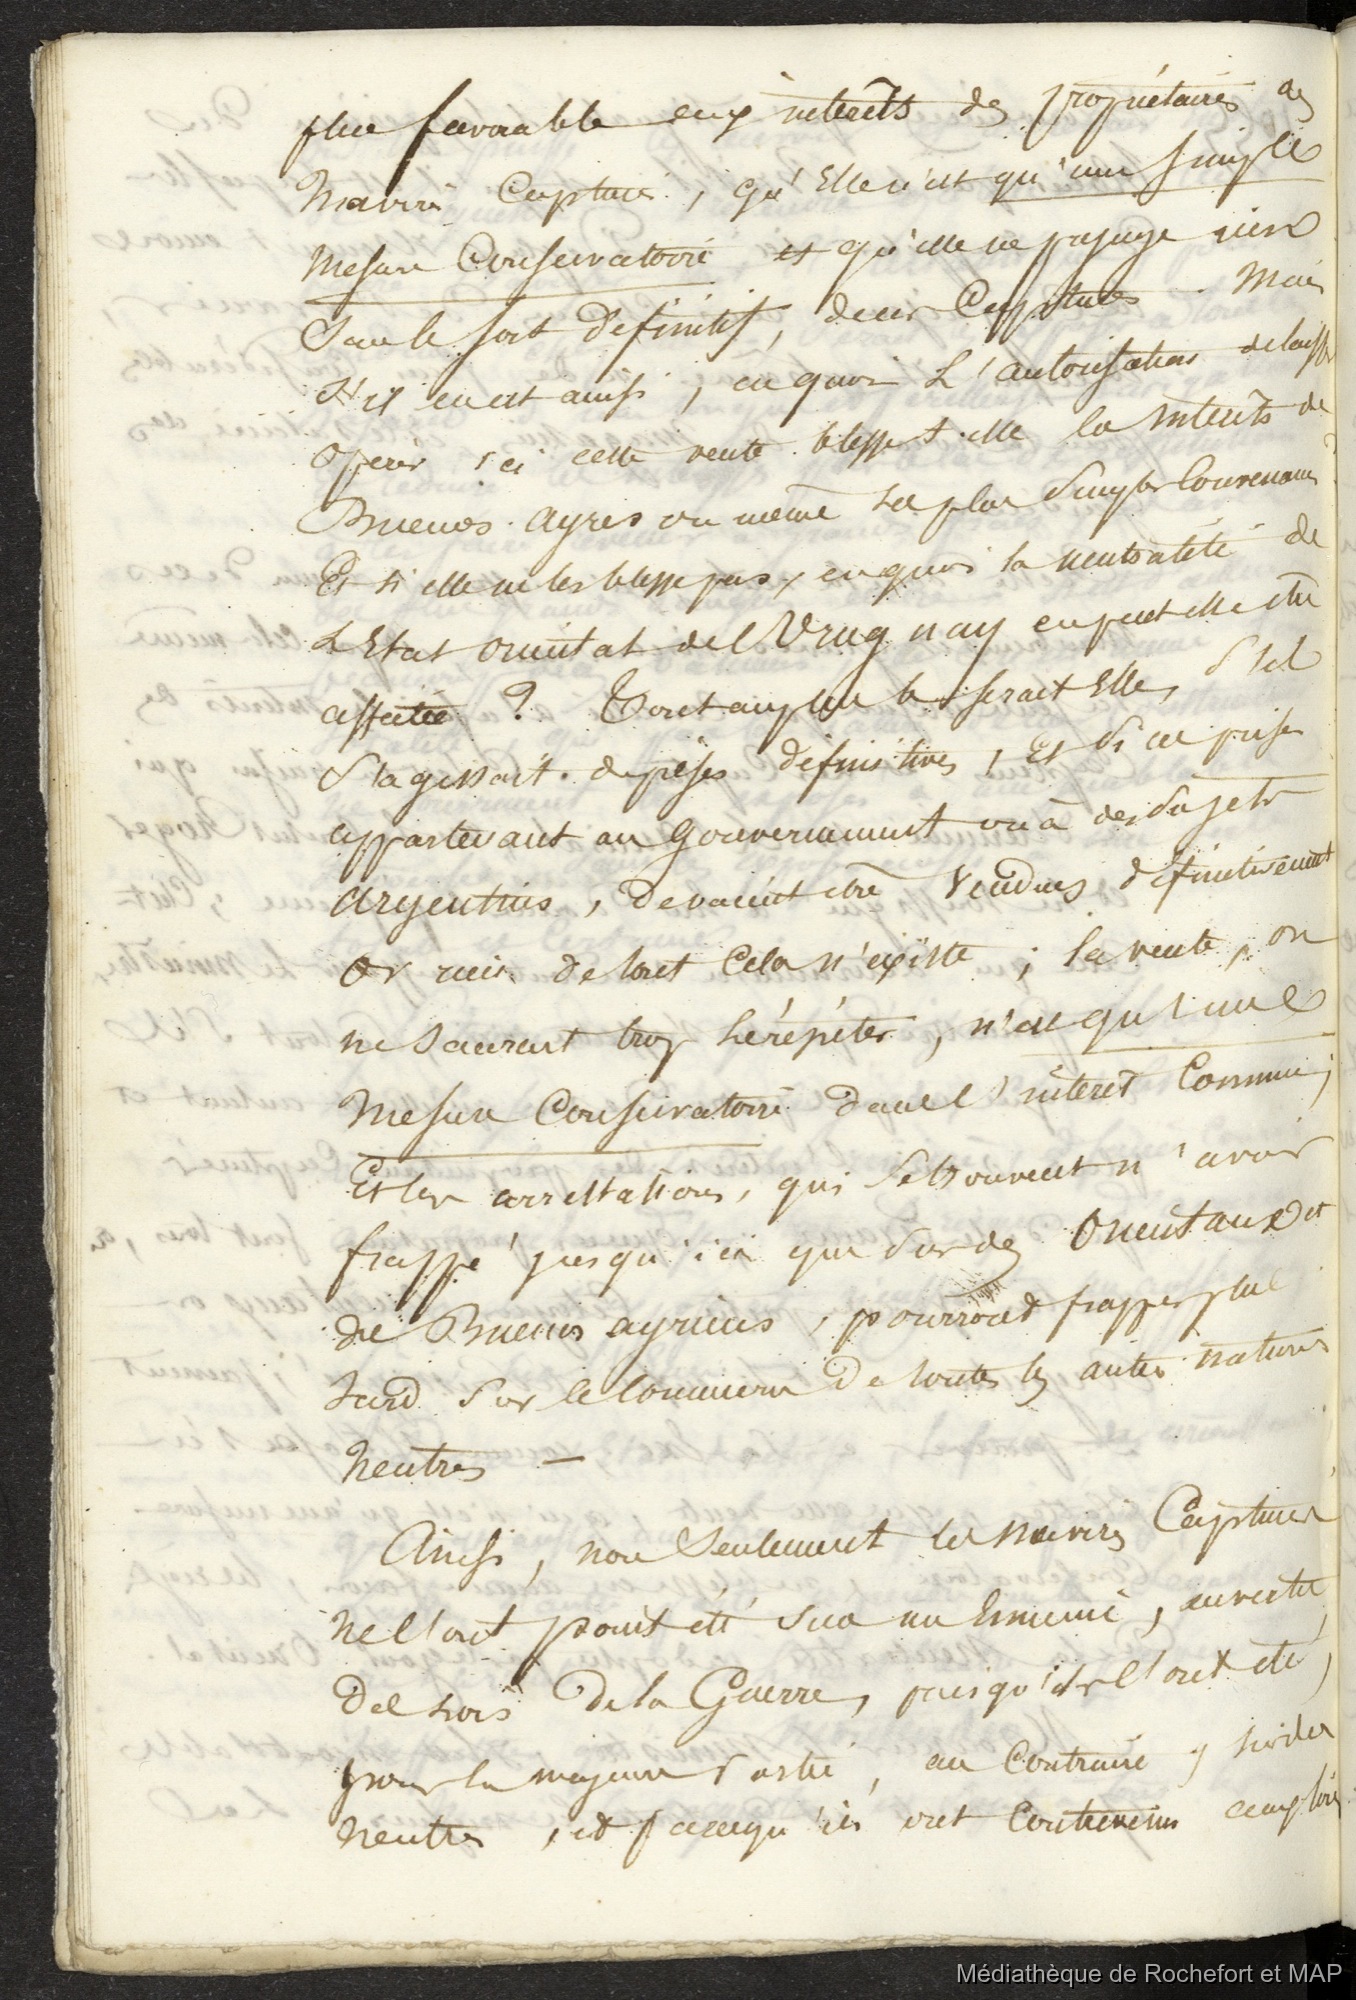 plus favorable aux interêts des propriétaires des
Navires Capturés, qu'Elle n'est qu'une simple
Mesure Conservatoire et qu'elle ne préjuge rien
Sur le sort définitif, de ces Captures. Mais
S'il en est ainsi, en quoi L'autorisation de laisser
opérer ici cette vente blesse t-elle les Interêts de
Buenos-ayres ou même les plus simples Convenances?
Et si elle ne les blesse pas, en quoi la neutralité de
L'Etat oriental de l'Uruguay en peut elle être
affectée ? Tout au plus le serait Elle, S'il
S'agissait de prises définitives, Et Si ces prises
appartenant au Gouvernement ou à des Sujets
argentins, devaient être Vendues définitivement
or rien de tout Cela n'existe ; la vente, on
ne Saurait trop le répéter, n'est qu'une
Mesure Conservatoire dans l'intérêt Commun ;
Et les arrestations, qui Se trouvent n'avoir
frappé jusqu'ici que Sur des Orientaux et
des Buenos ayriens, pourront frapper plus
tard Sur le Commerce de toutes les autres nations
Neutres —
Ainsi, non Seulement les navires Capturés
ne l'ont point été Sur un Ennemi, en vertu
des Lois de la Guerre, puisqu'ils l'ont été,
pour la majeure Partie, au Contraire, sur des
Neutres, et parcequ'ils ont Contrevenu aux lois
Médiathèque de Rochefort et MAP